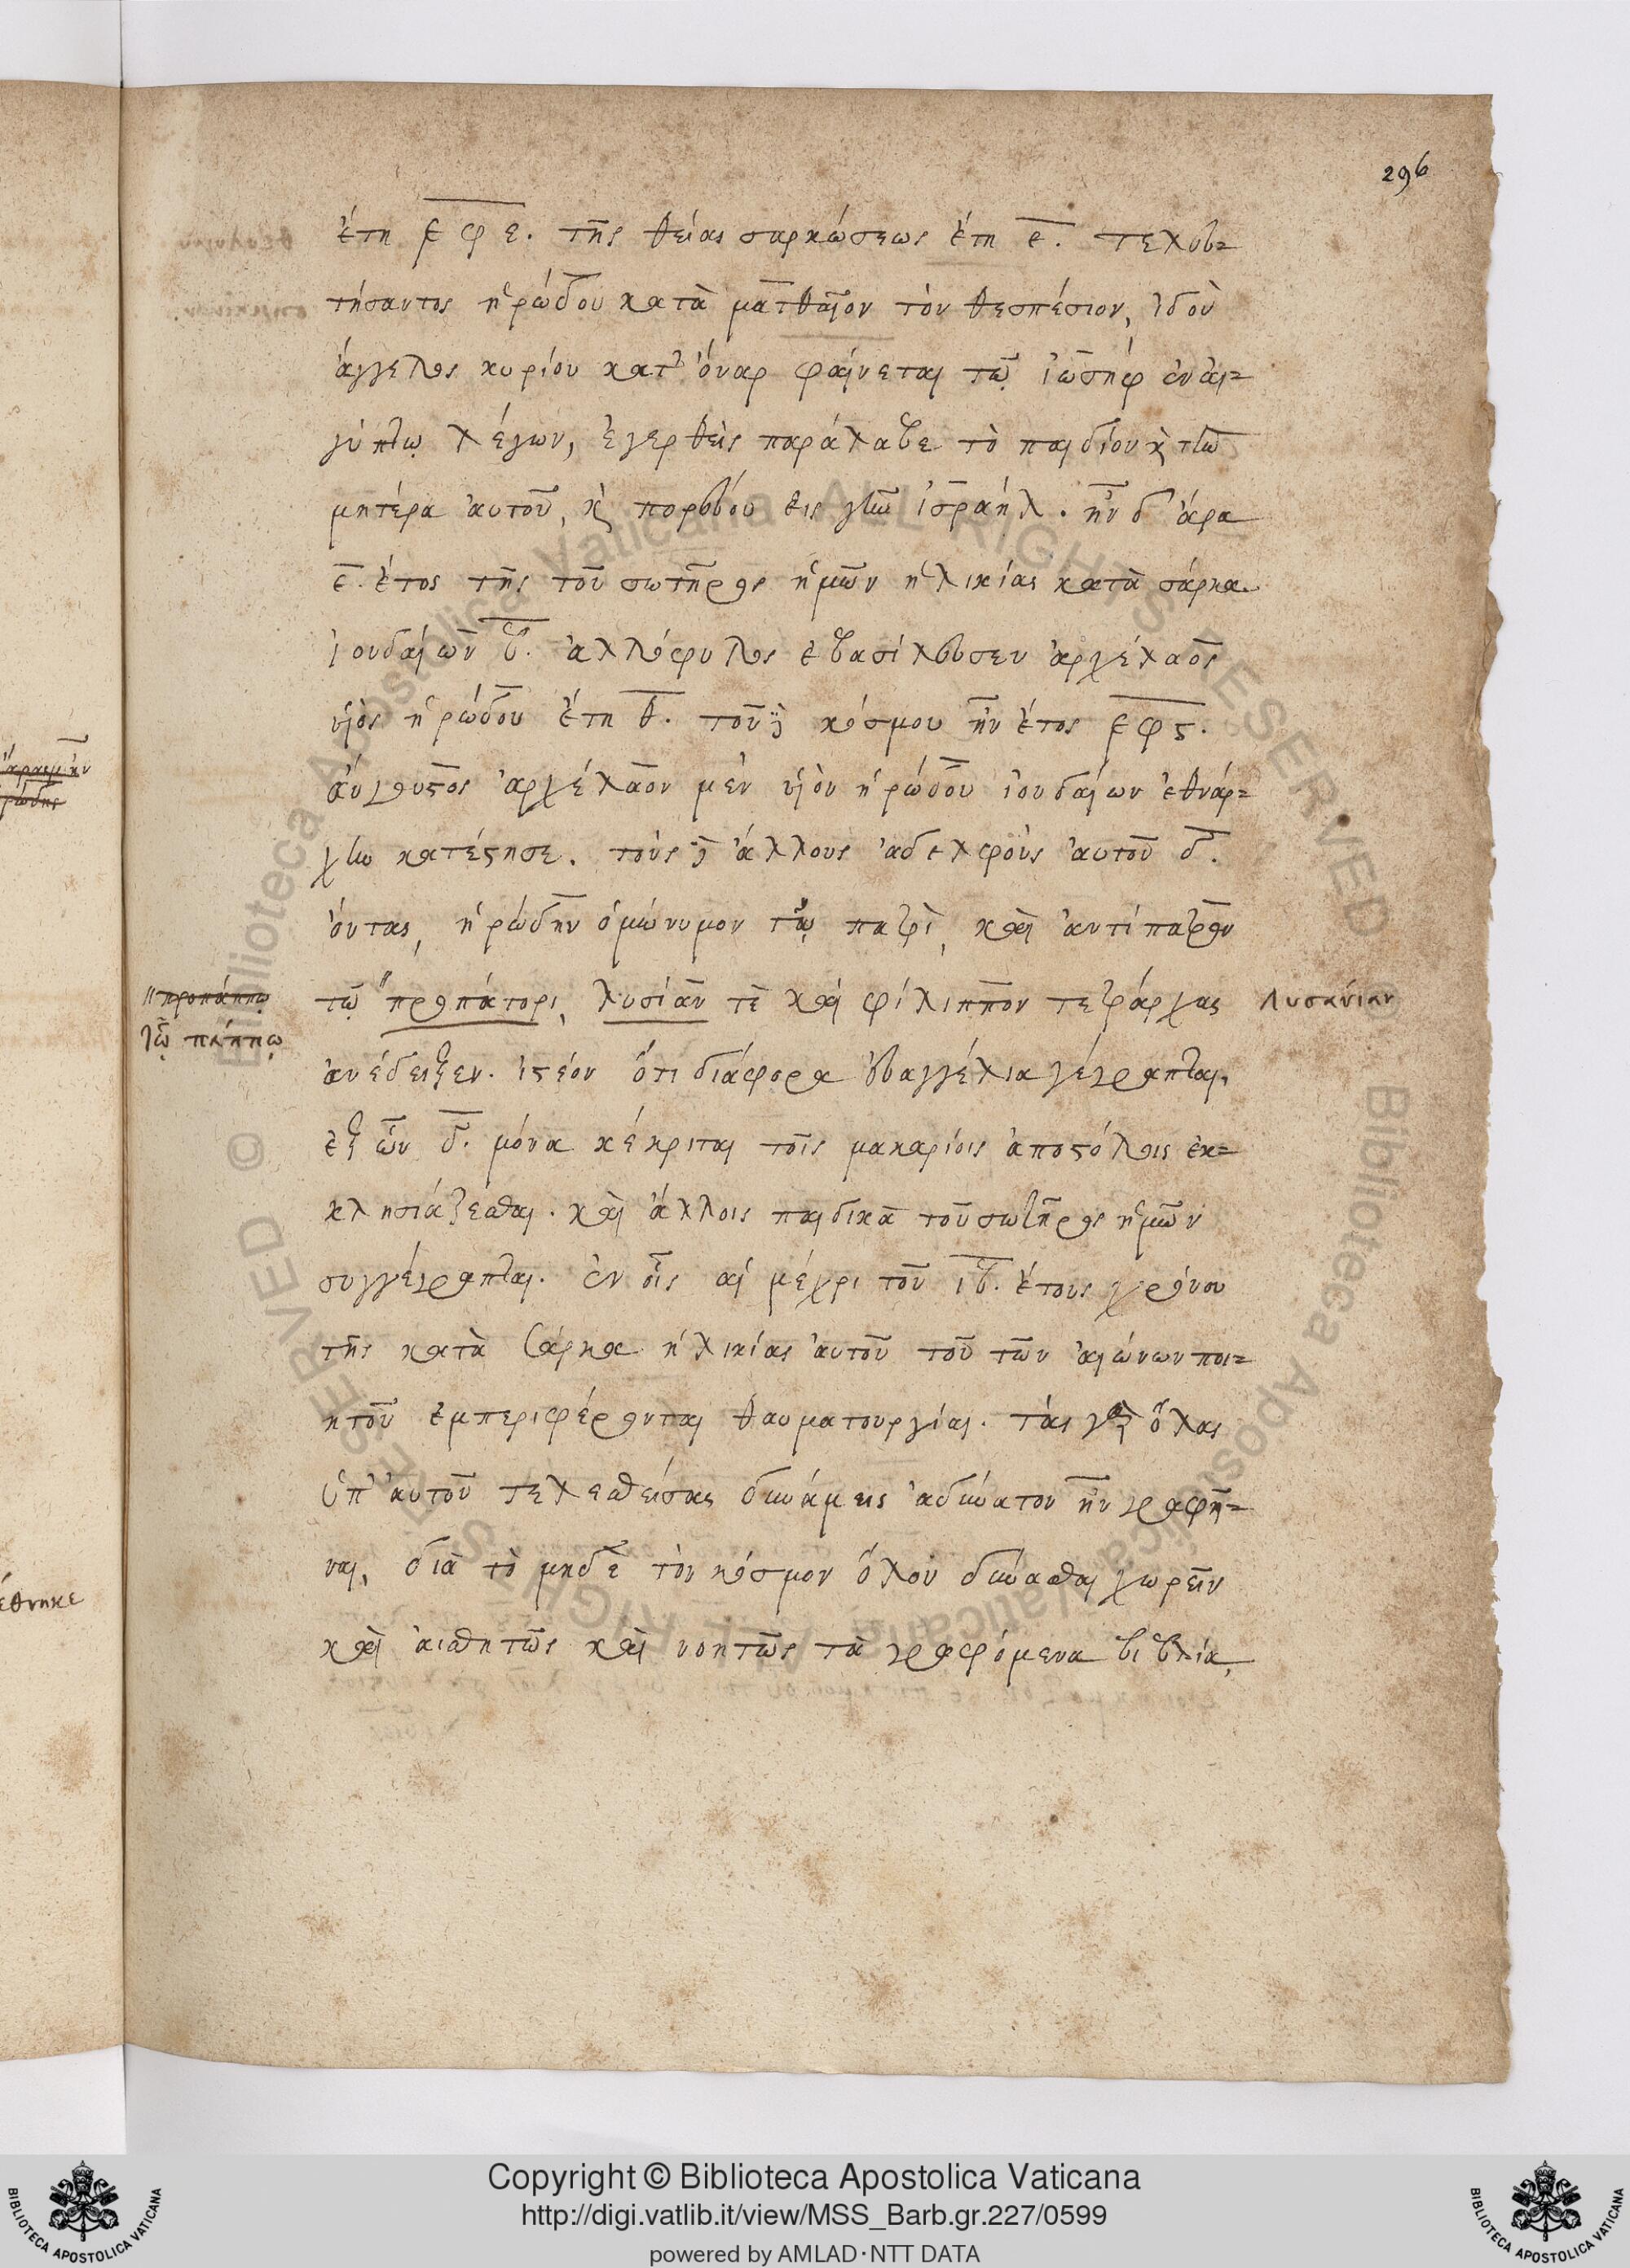 296
ἔτη ͵εφε. τῆς θείας σαρκώσεως ἔτη ε. τελευ=
τήσαντος ἡρώδου κατὰ ματθαῖον τὸν θεσπέσιον, ἰδοὺ
ἄγγελος κυρίου κατ' ὄναρ φαίνεται τῷ ἰωσὴφ ἐν αἰ=
γύπτῳ λέγων, ἐγερθεὶς παράλαβε τὸ παιδίον κ̀ τὴν
μητέρα αὐτοῦ, κ̀ πορεύου εἰς γῆν ἰσραήλ. ἦν δ' ἄρα
ε. ἔτος τῆς τοῦ σωτῆρος ἡμῶν ἡλικίας κατὰ σάρκα.
ἰουδαίων β. ἀλλόφυλος ἐβασίλευσεν ἀρχέλαος
υἱὸς ἡρώδου ἔτη θ. τοῦ δὲ κόσμου ἦν ἔτος ͵εφϛ.
ἄυγουστος ἀρχέλαον μὲν υἱὸν ἡρώδου ἰουδαίων ἐθνάρ=
χην κατέστησε. τοὺς δὲ ἄλλους ἀδελφοὺς αὐτοῦ δ.
ὄντας, ἡρώδην ὁμώνυμον τῷ πατρὶ, καὶ ἀντίπατρον
προπάππῳ
τῷ πάππῳ
τῷ προπάτορι, λυσίαν τὲ καὶ φίλιππον τετράρχας
Λυσανίαν
ἀνέδειξεν. ἰστέον ὅτι διάφορα ἐυαγγέλια γέγραπται,
ἐξ ὧν δ. μόνα κέκριται τοῖς μακαρίοις ἀποστόλοις ἐκ=
κλησιάζεσθαι. καὶ ἄλλοις παιδικὰ τοῦ σωτῆρος ἡμῶν
συγγέγραπται. ἐν οἷς αἱ μέχρι τοῦ ιβ. ἔτους χρόνου
τῆς κατὰ σάρκα ἡλικίας αὐτοῦ τοῦ τῶν αἰώνων ποι=
ητοῦ ἐμπεριφέρονται θαυματουργίαι. τὰς γὰρ ὅλας
ὑπ' αὐτοῦ τελεσθείσας δυνάμεις ἀδύνατον ἦν γραφῆ=
ναι, διὰ τὸ μηδὲ τὸν κόσμον ὅλον δύνασθαι χωρεῖν
καὶ αἰσθητῶς καὶ νοητῶς τὰ γραφόμενα βιβλία,
Copyright © Biblioteca Apostolica Vaticana
http://digi.vatlib.it/view/MSS_Barb.gr.227/0599
powered by AMLAD·NTT DATA